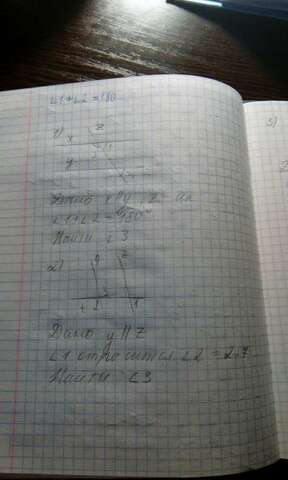 ∠1+∠2=180
x z
y
Дано x||y, z
∠1+∠2=180°
Найти ∠3
2)
y z
3
2 1
Дано y||z
∠1 относится ∠2 = 2:7
Найти ∠3
5)